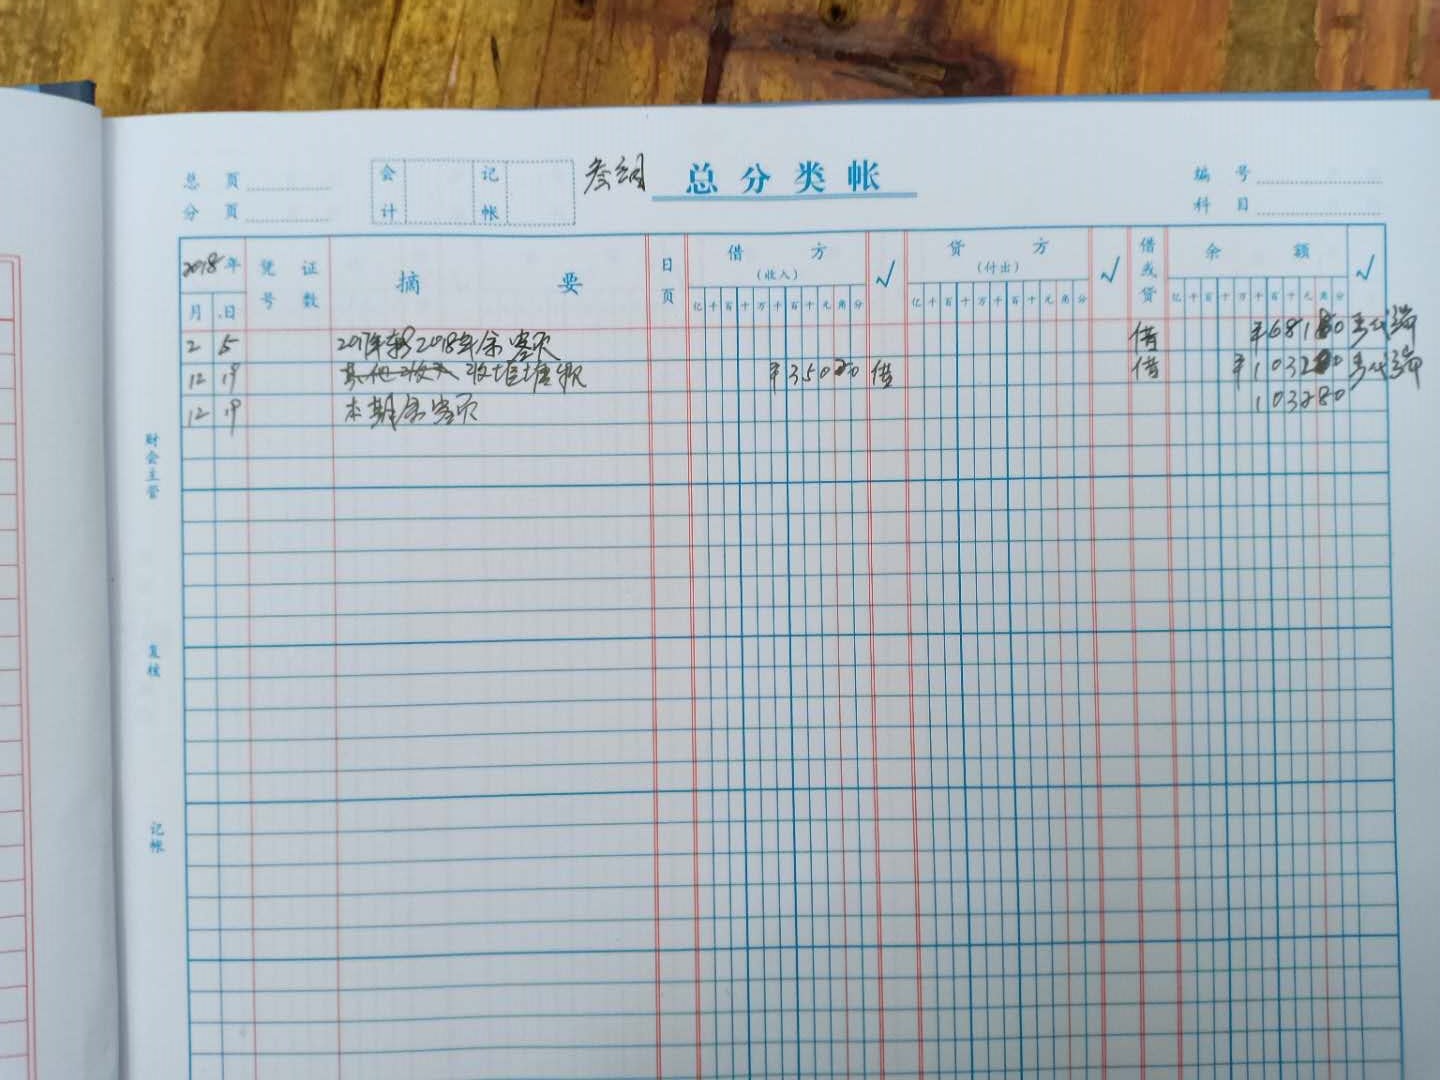 总 页
分 页
会 计
记 帐
叁组
总分类帐
编 号
科 目
2018年
凭 证
号 数
摘 要
日 页
借 方
(收入)
√
贷 方
(付出)
√
借或贷
余 额
√
月 日
亿千百十万千百十元角分
亿千百十万千百十元角分
亿千百十万千百十元角分
2 5 2017年转2018年余 借 ¥68180
12 19 其他收入 收 款 ¥35000 借 借 ¥103280
12 19 本期余 103280
财会主管
复核
记帐